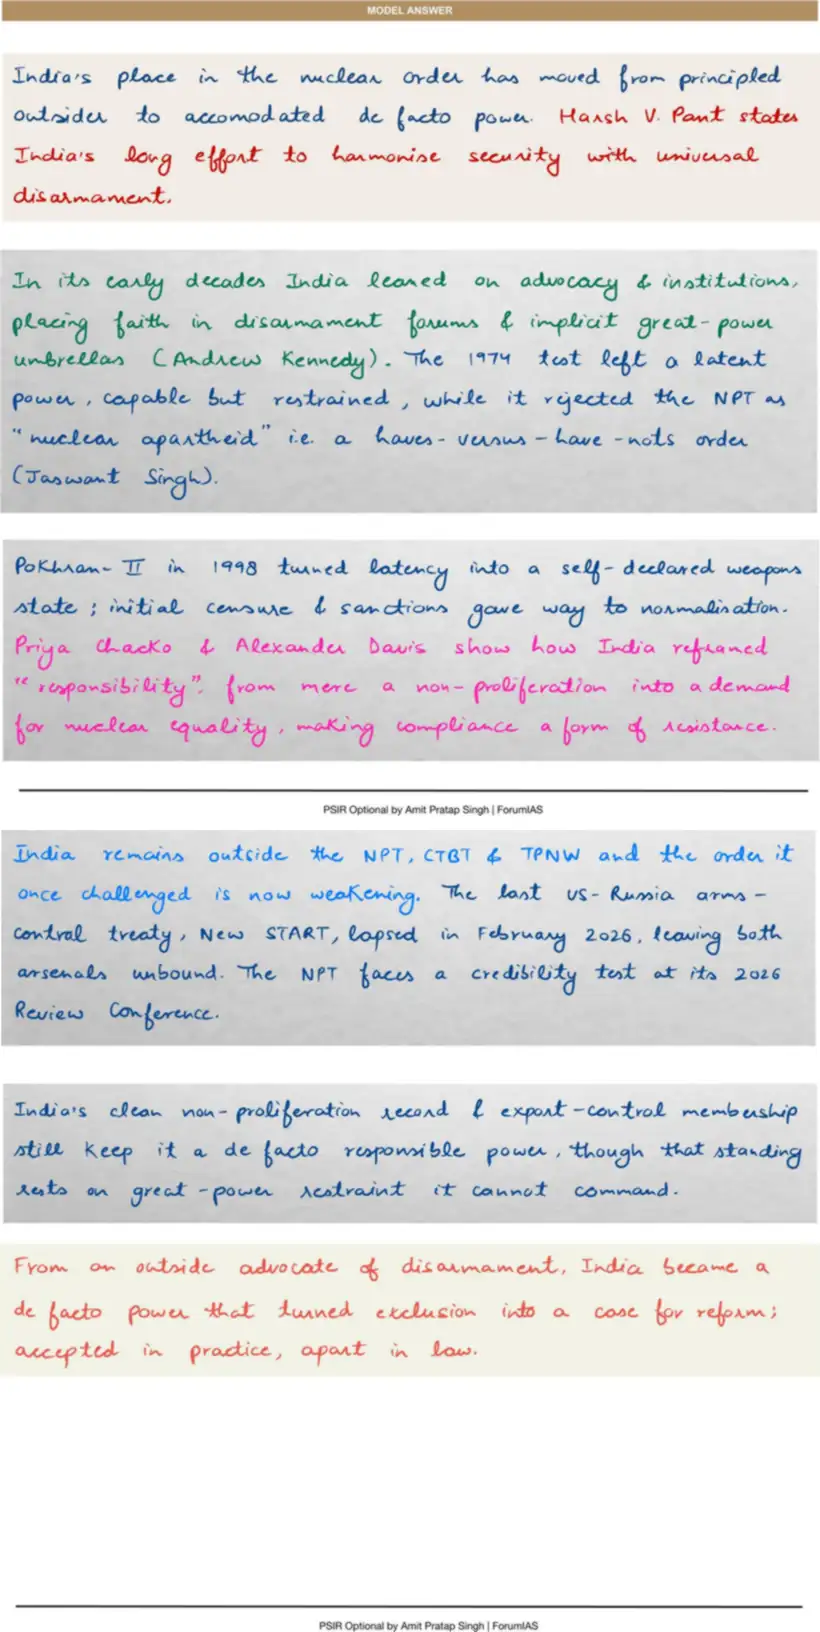 MODEL ANSWER
India's place in the nuclear order has moved from principled
outsider to accomodated de facto power. Harsh V. Pant states
India's long effort to harmonise security with universal
disarmament.
In its early decades India leaned on advocacy & institutions,
placing faith in disarmament forums & implicit great-power
umbrellas (Andrew Kennedy). The 1974 test left a latent
power, capable but restrained, while it rejected the NPT as
"nuclear apartheid" i.e. a haves-versus-have-nots order
(Jaswant Singh).
Pokhran-II in 1998 turned latency into a self-declared weapons
state; initial censure & sanctions gave way to normalisation.
Priya Chacko & Alexander Davis show how India reframed
"responsibility", from mere a non-proliferation into a demand
for nuclear equality, making compliance a form of resistance.
PSIR Optional by Amit Pratap Singh | ForumIAS
India remains outside the NPT, CTBT & TPNW and the order it
once challenged is now weakening. The last US-Russia arms-
control treaty, New START, lapsed in February 2026, leaving both
arsenals unbound. The NPT faces a credibility test at its 2026
Review Conference.
India's clean non-proliferation record & export-control membership
still keep it a de facto responsible power, though that standing
rests on great-power restraint it cannot command.
From an outside advocate of disarmament, India became a
de facto power that turned exclusion into a case for reform;
accepted in practice, apart in law.
PSIR Optional by Amit Pratap Singh | ForumIAS